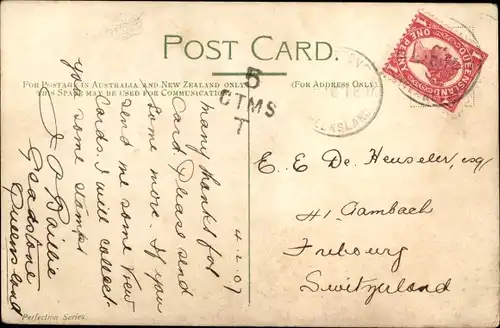 POST CARD.
FOR POSTAGE IN AUSTRALIA AND NEW ZEALAND ONLY
THIS SPACE MAY BE USED FOR COMMUNICATION
(FOR ADDRESS ONLY)
5
CTMS
T
QUEENSLAND
ONE PENNY
4-2-07
Many thanks for
Card. Please send
Some more. If you
send me some View
Card. I will collect
you some stamps
J P Baillie
Gladstone
Queensland
E. E. De Heuseler, esq
41. Gambach
Fribourg
Switzerland
Perfection Series.